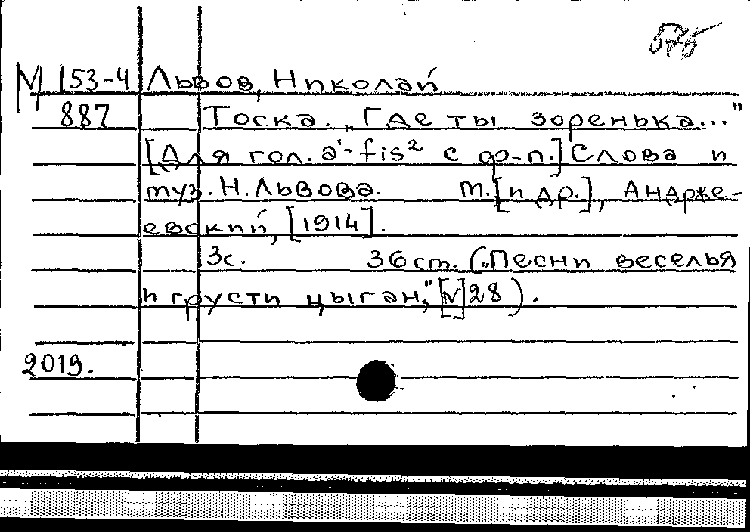 М 153-4 Львов, Николай
887 Тоска. „Где ты зоренька..."
[Для гол. a¹-fis² с ф-п.] Слова и
муз. Н. Львова. М. [и др.], Андрже-
евский, [1914].
3с. 36 см. („Песни веселья
и грусти цыган," [№] 28).
2019.